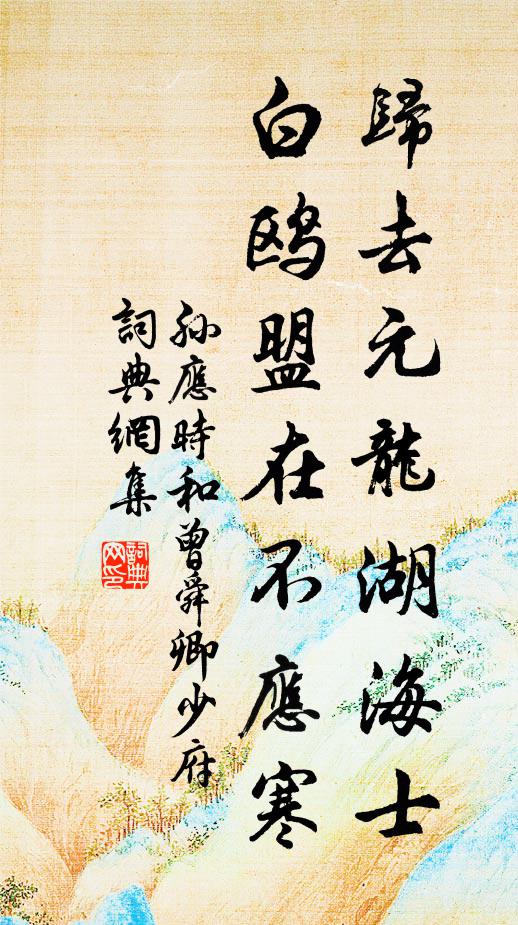 歸去元龍湖海士
白鷗盟在不應寒
孫應時和曾舜卿少府
詞典網集
詞典网印